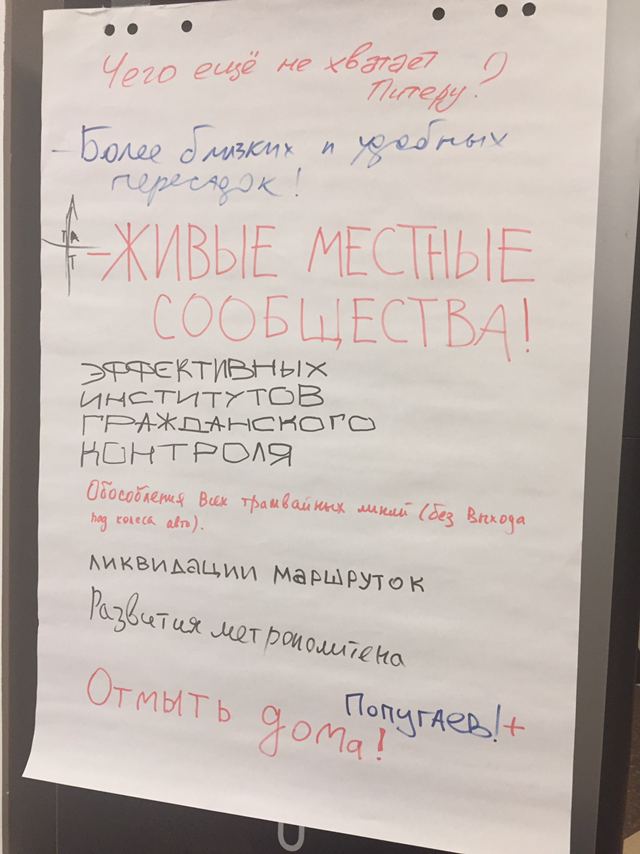 Чего ещё не хватает
Питеру?
- Более близких и удобных
пересадок!
- ЖИВЫЕ МЕСТНЫЕ
СООБЩЕСТВА!
ЭФФЕКТИВНЫХ
ИНСТИТУТОВ
ГРАЖДАНСКОГО
КОНТРОЛЯ
Обособления всех трамвайных линий (без выхода
под колеса авто).
ЛИКВИДАЦИИ МАРШРУТОК
Развития метрополитена
Отмыть дома!
Попугаев!+